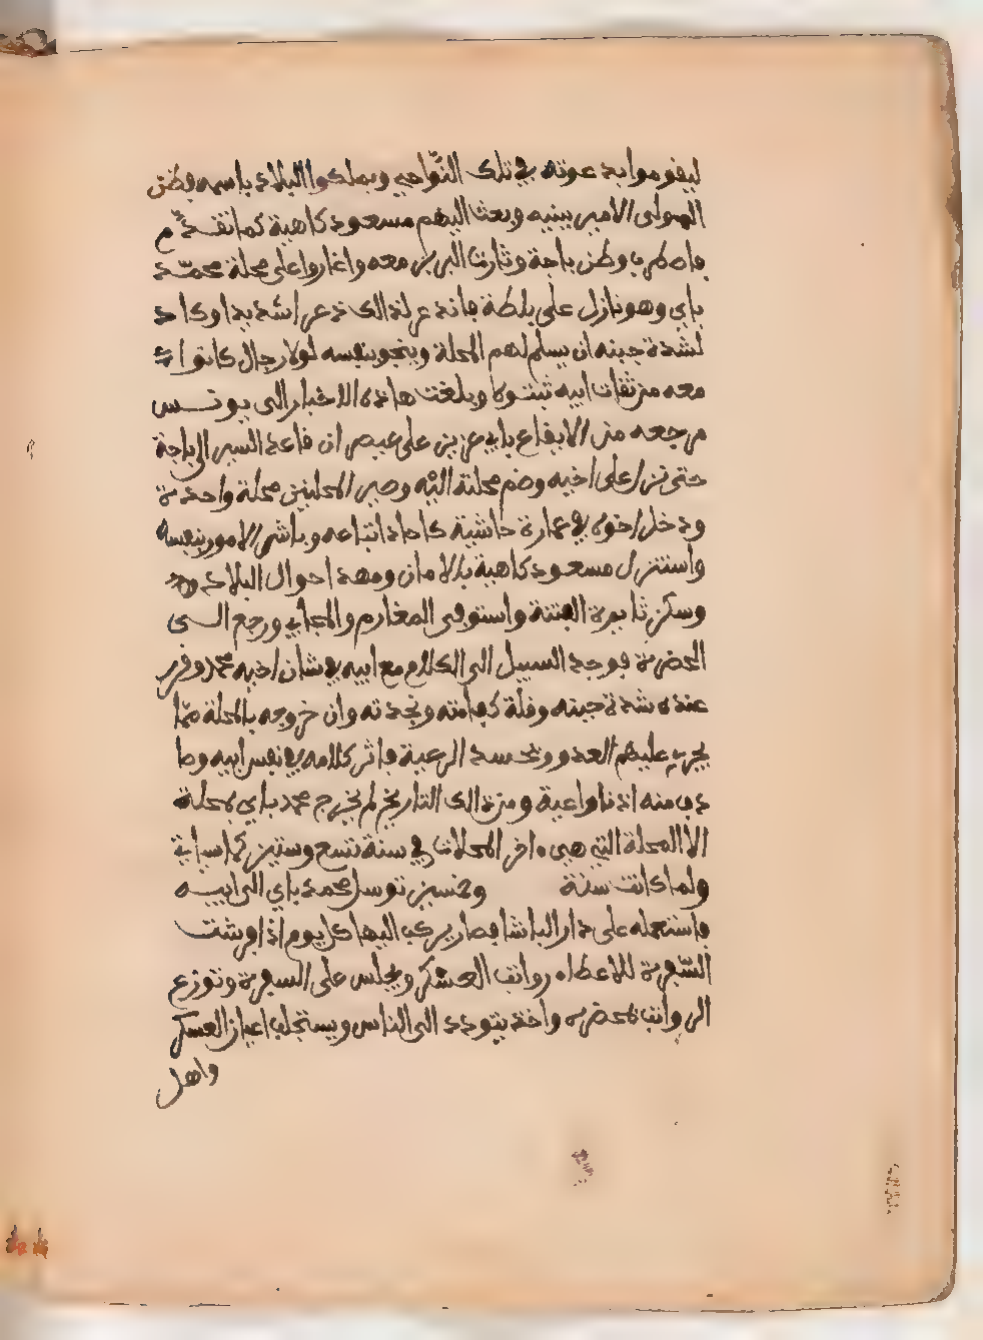 ليقوموا بدعوته في تلك النّواحي ويملكوا البلاد باسمه فظن
المولى الامير ببنيه وبعث اليهم مسعود كاهية كما تقدّم
فاضطرب وطن باجة وثارت البربر معه واغاروا على محلة محمّد
باي وهو نازل على بلطة فانذعر لذالك ذعرا شديدا وكاد
لشدة جبنه ان يسلم لهم المحلة وينجو بنفسه لولا رجال كانوا
معه من ثقات ابيه ثبتوه وبلغت هاذه الاخبار الى يونس
مرجعه من الايقاع باي عزيز على فاعد السير الى باجة
حتى نزل على اخيه وضم محلته اليه وصير المحلتين محلة واحدة
ودخل اخوه في عمارة حاشيته كاحاد اتباعه وباشر الامور بنفسه
واستنزل مسعود كاهية بالامان ومهد احوال البلاد
وسكن ثايرة الفتنة واستوفى المغارم والمجابي ورجع الى
الحضرة فوجد السبيل الى الكلام مع ابيه في شان اخيه محمد وقرر
عنده شدة جبنه وقلة شهامته ونجدته وان خروجه بالمحلة ممّا
يجري عليهم العدو ويحسد الرعية فاثر كلامه في نفس ابيه وصا
دف منه اذنا واعية ومن ذالك التاريخ لم يخرج محمد باي بمحلة
الا المحلة التي هي ءاخر المحلات في سنة تسع وستين كما سياتي
ولما كانت سنة وخمسين توسل محمد باي الى ابيه
فاستعمله على دار الباشا فصار يركب اليها كل يوم اذا فرشت
السّفرة للاعطاء رواتب العسكر ويجلس على السفرة وتوزع
الرواتب بمحضره واخذ يتودد الى الناس ويستجلب اعيان العسكر
واهل